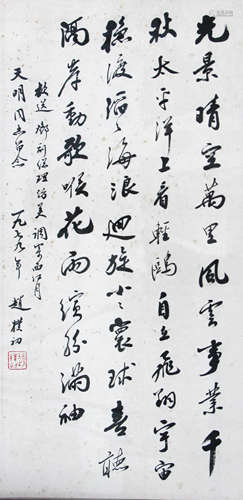 光景晴空萬里風雲事業千
秋太平洋上看輕鷗自在飛翔宇宙
穩渡滔〻海浪迴旋小〻寰球喜聽
隔岸動歌喉花雨繽紛滿袖
敬送鄧副總理訪美 調寄西江月
天明同志留念
一九七九年 趙樸初